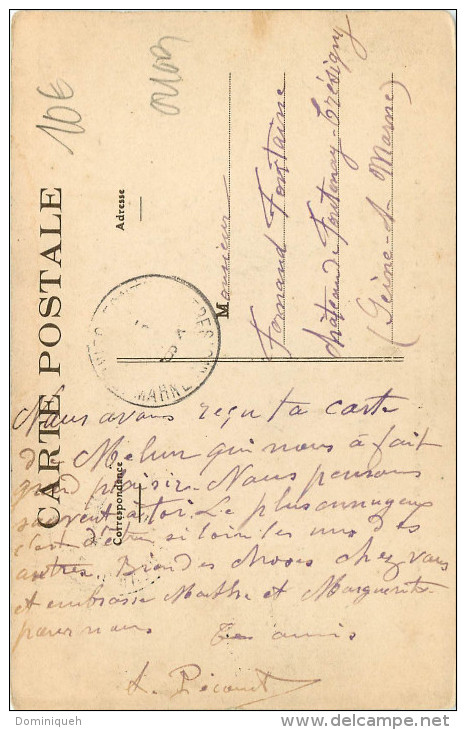 10€
CARTE POSTALE
Adresse
Correspondance
Monsieur
Fernand Fontaine
château de Fontenay-Trésigny
(Seine-&-Marne)
MARNE
Nous avons reçu ta carte
de Melun qui nous à fait
grand plaisir. Nous pensons
souvent à toi. Le plus ennuyeux
c'est d'être si loin les uns des
autres. Biendes choses chez vous
et embrasse Marthe et Marguerite
pour nous Tes amis
A.
Dominiqueh